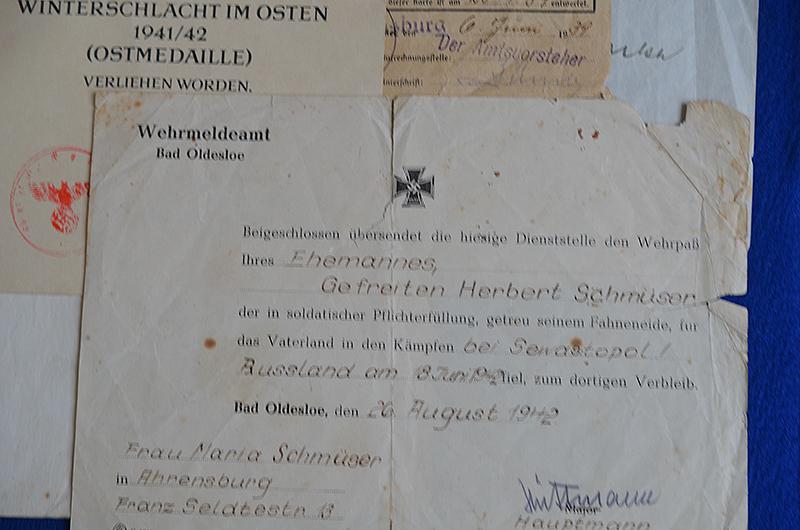 WINTERSCHLACHT IM OSTEN
1941/42
(OSTMEDAILLE)
VERLIEHEN WORDEN.
dieser Karte ist am
entwertet.
burg 6. Juni 1939
Der Amtsvorsteher
Wehrmeldeamt
Bad Oldesloe
Beigeschlossen übersendet die hiesige Dienststelle den Wehrpaß
Ihres Ehemannes,
Gefreiten Herbert Schmüser
der in soldatischer Pflichterfüllung, getreu seinem Fahneneide, für
das Vaterland in den Kämpfen bei Sewastopol /
Russland am 8 Juni 1942 fiel, zum dortigen Verbleib.
Bad Oldesloe, den 26. August 1942
Frau Maria Schmüser
in Ahrensburg
Franz Seldtestr 13
Major
Hauptmann